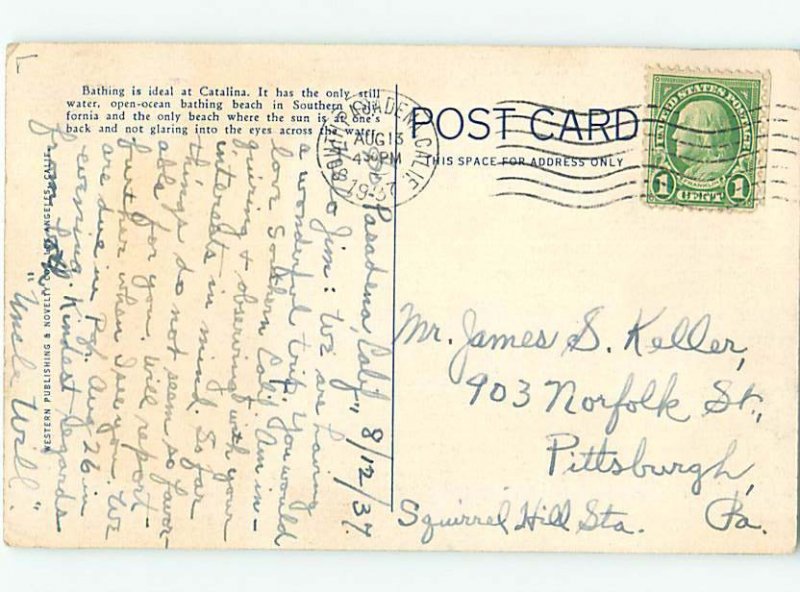 Bathing is ideal at Catalina. It has the only still
water, open-ocean bathing beach in Southern Cali-
fornia and the only beach where the sun is at one's
back and not glaring into the eyes across the water.
POST CARD
THIS SPACE FOR ADDRESS ONLY
PASADENA, CALIF.
AUG 13
4 PM
1937
UNITED STATES POSTAGE
FRANKLIN
1 CENT 1
WESTERN PUBLISHING & NOVELTY CO., LOS ANGELES, CALIF.
Pasadena, Calif., 8/12/37.
Jim: We are having
a wonderful trip. You would
love Southern Calif. Am in-
quiring & observing with your
interests in mind. So far
things do not seem so favor-
able for you. Will report
further when I see you. We
are due in Pgh. Aug 26 in
evening. Kindest Regards
from
"Uncle Will".
Mr. James S. Keller,
903 Norfolk St.,
Pittsburgh,
Squirrel Hill Sta. Pa.